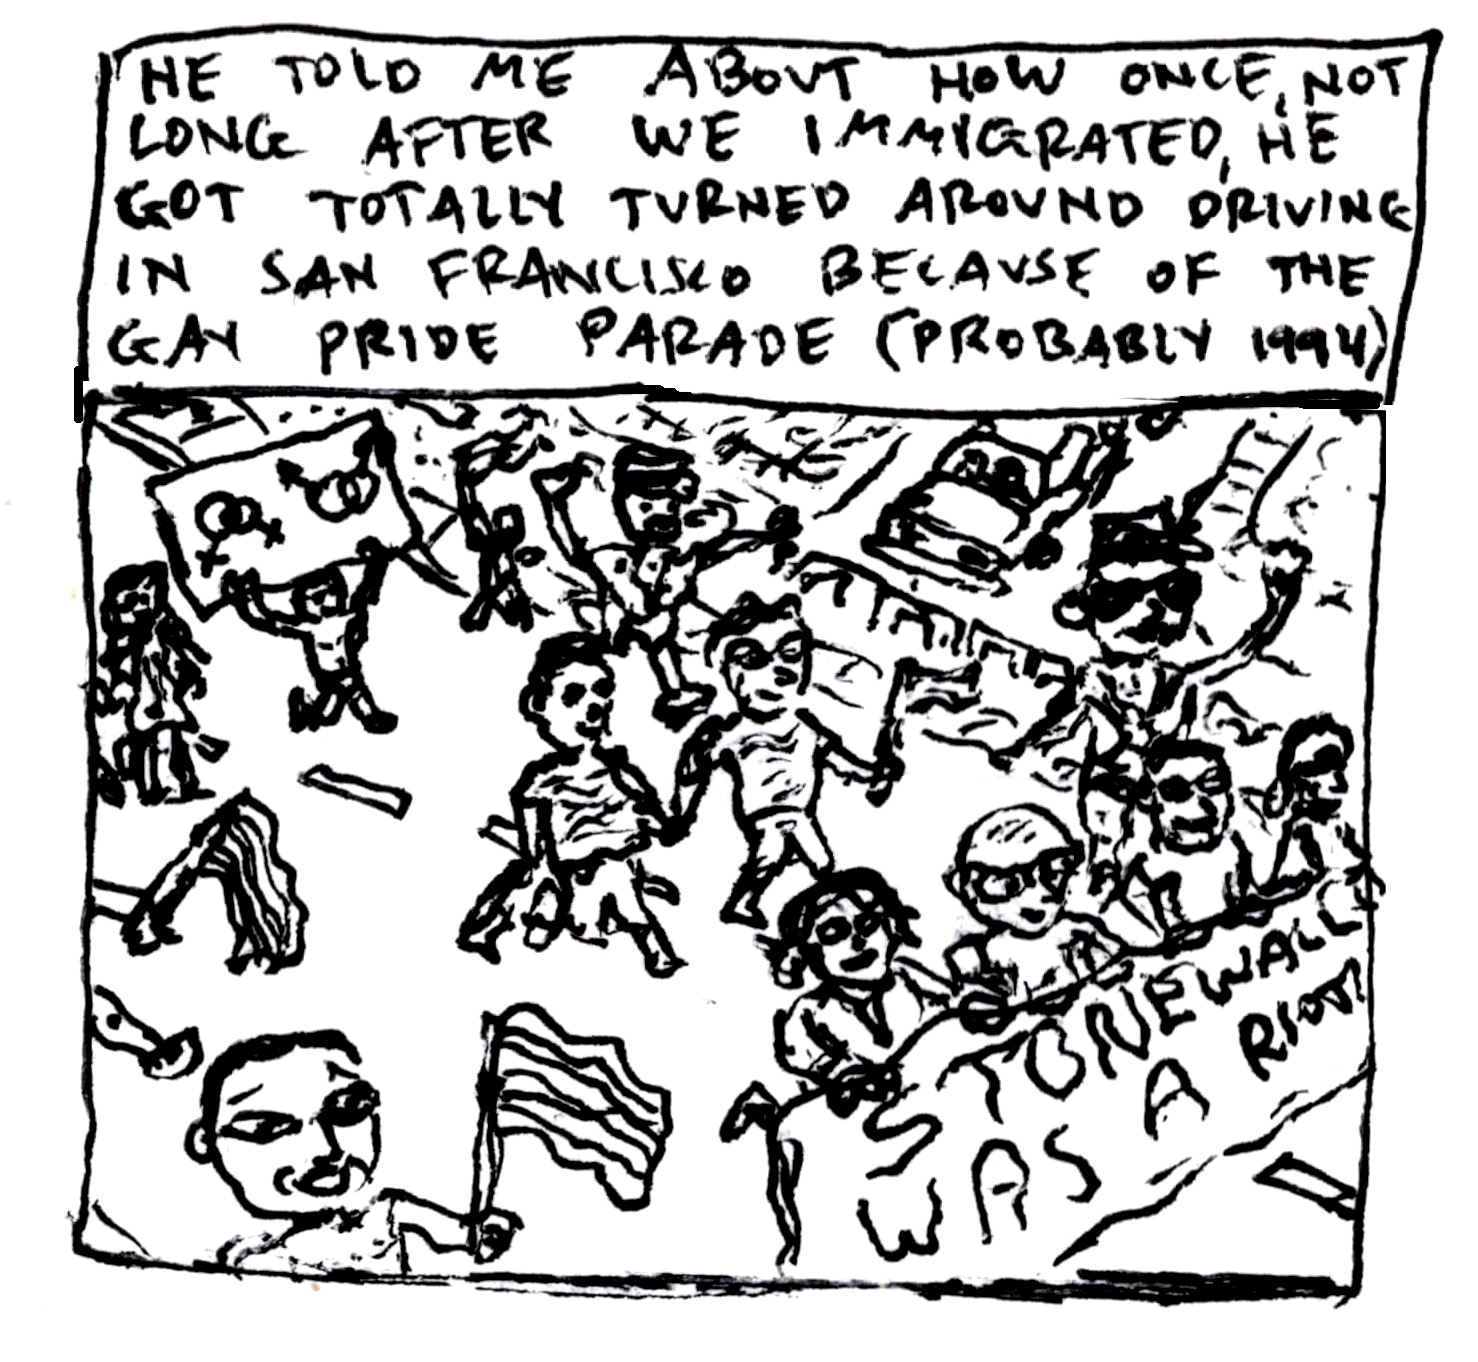 HE TOLD ME ABOUT HOW ONCE, NOT
LONG AFTER WE IMMIGRATED, HE
GOT TOTALLY TURNED AROUND DRIVING
IN SAN FRANCISCO BECAUSE OF THE
GAY PRIDE PARADE (PROBABLY 1994)
STONEWALL
WAS A RIOT!